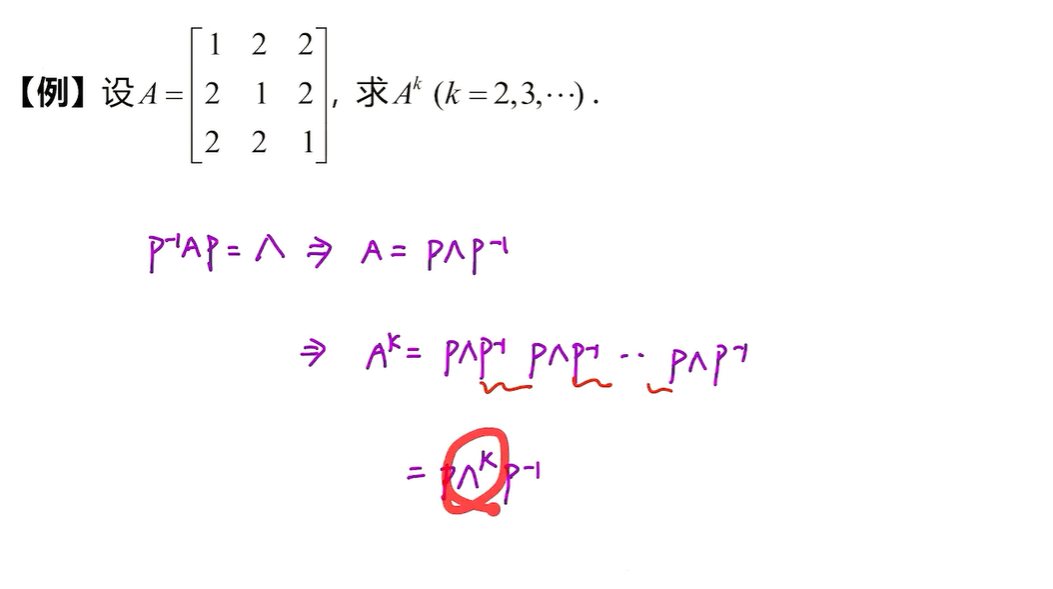 【例】设 A = [1 2 2; 2 1 2; 2 2 1], 求 A^k (k = 2,3,⋯) .
P⁻¹AP = Λ ⇒ A = PΛP⁻¹
⇒ A^k = PΛP⁻¹ PΛP⁻¹ ·· PΛP⁻¹
= PΛ^k P⁻¹